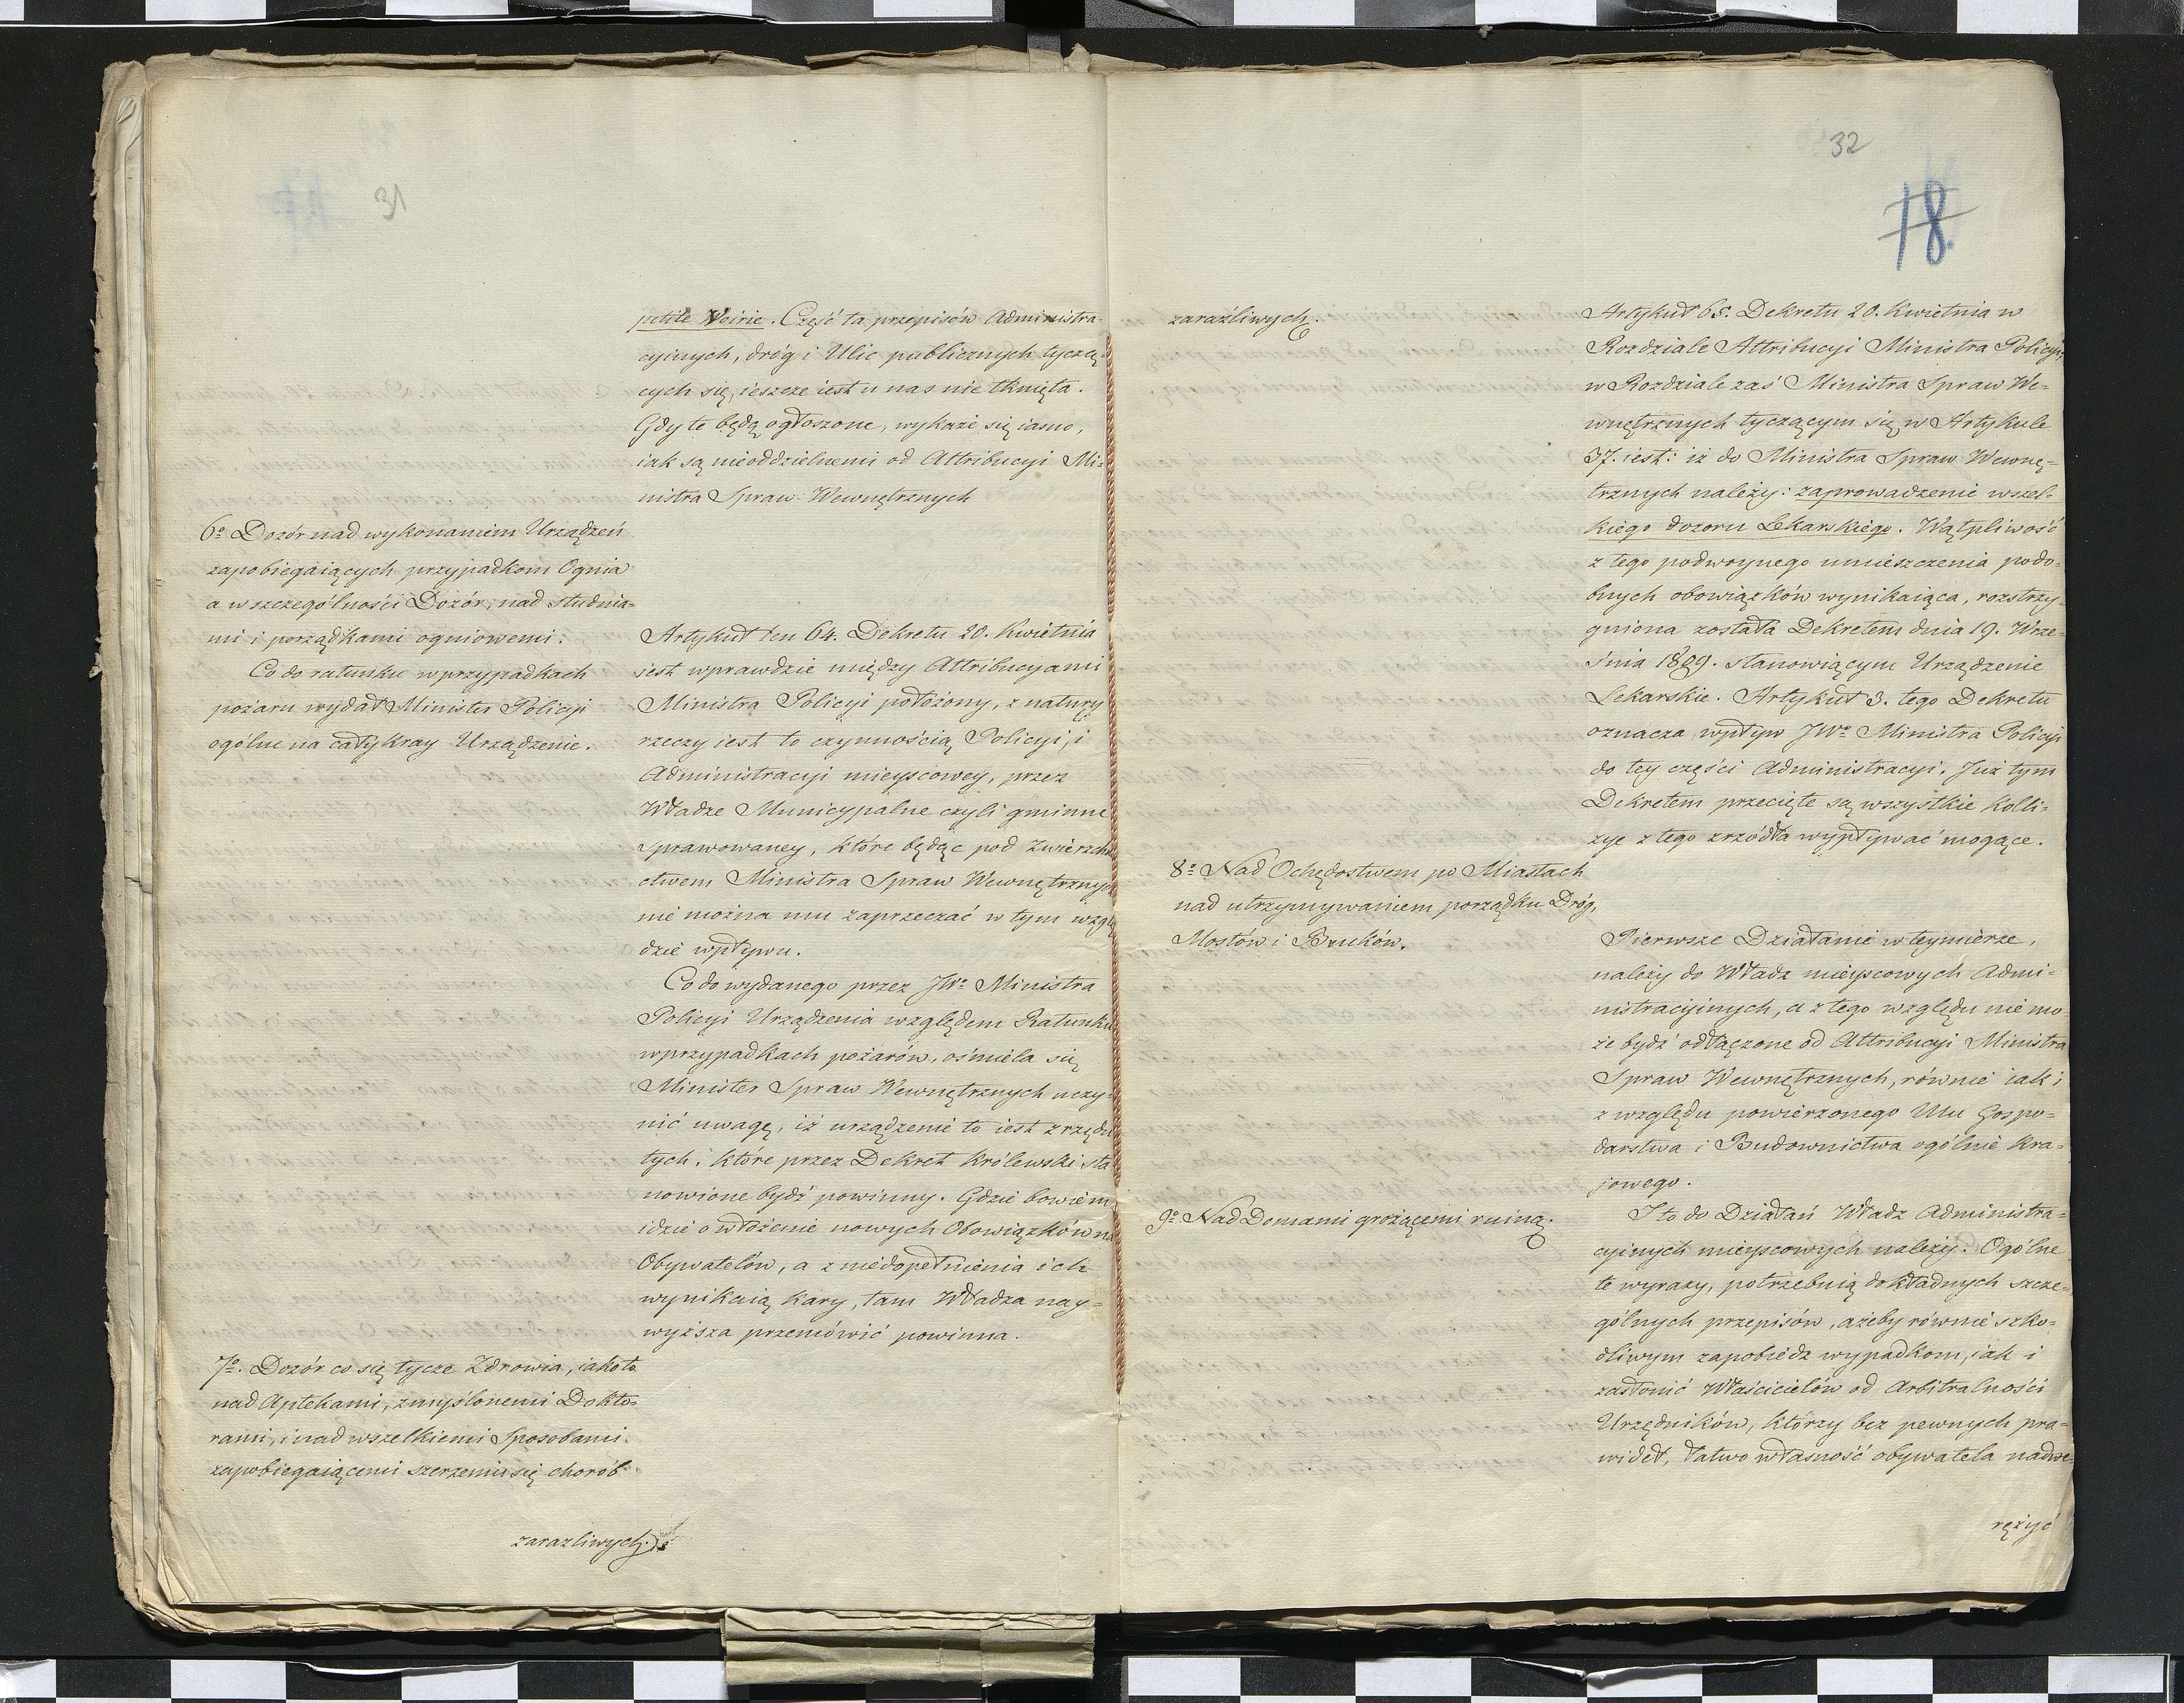 31
petite Voirie. Część ta przepisów Administra-
cyinych, dróg i Ulic publicznych tyczą-
cych się, ieszcze iest u nas nie tknięta.
Gdy te będą ogłoszone, wykaże się iasno,
iak są nieoddzielnemi od Attribucyi Mi-
nistra Spraw Wewnętrznych
6o Dozór nad wykonaniem Urządzeń
zapobiegaiących przypadkom Ognia
a w szczególności Dozór, nad studnia-
mi i porządkami ogniowemi.
Co do ratunku w przypadkach
pożaru wydał Minister Policyi
ogólne na cały kray Urządzenie.
Artykuł ten 64. Dekretu 20. Kwietnia
iest wprawdzie między Attribucyami
Ministra Policyi położony, z natury
rzeczy iest to czynnością Policyi, i
Administracyi mieyscowey, przez
Władze Municypalne czyli gminne
sprawowaney, które będąc pod Zwierzchni
ctwem Ministra Spraw Wewnętrznych
nie można mu zaprzeczać w tym wzglę
dzie wpływu.
Co do wydanego przez JWo Ministra
Policyi Urządzenia względem Ratunku
w przypadkach pożarów, ośmiela się
Minister Spraw Wewnętrznych uczy-
nić uwagę, iż urządzenie to iest z rzędu
tych, które przez Dekret Królewski sta
nowione bydź powinny. Gdzie bowiem
idzie o włożenie nowych Obowiązków na
Obywatelów, a z niedopełnienia ich
wynikaią kary, tam Władza nay-
wyższa przemówić powinna.
7o. Dozór co się tycze Zdrowia, iako to
nad Aptekami, zmyślonemi Dokto-
rami, i nad wszelkiemi Sposobami
zapobiegaiącemi szerzeniu się chorób
zarazliwych.
32
18.
zaraźliwych.
Artykuł 65. Dekretu 20. Kwietnia w
Rozdziale Attribucyi Ministra Policyi,
w Rozdziale zaś Ministra Spraw We-
wnętrznych tyczącym się w Artykule
37. iest: iż do Ministra Spraw Wewnę-
trznych należy: zaprowadzenie wszel-
kiego dozoru Lekarskiego. Wątpliwość
z tego podwoynego umieszczenia podo-
bnych obowiązków wynikaiąca, rozstrzy-
gniona została Dekretem dnia 19. Wrze-
śnia 1809. stanowiącym Urządzenie
Lekarskie. Artykuł 3. tego Dekretu
oznacza wpływ JWo Ministra Policyi
do tey części Administracyi. Już tym
Dekretem przecięte są wszystkie kolli-
zye z tego zrzódła wypływać mogące.
8o Nad Ochędostwem po Miastach
nad utrzymywaniem porządku Dróg,
Mostów i Bruków.
Pierwsze Działanie w teymierze,
należy do Władz mieyscowych Admi-
nistracyinych, a z tego względu nie mo
że bydź odłączone od Attribucyi Ministra
Spraw Wewnętrznych, równie iak i
z względu powierzonego Mu Gospo-
darstwa i Budownictwa ogólnie kra-
jowego.
9o Nad Domami grożącemi ruiną.
I to do Działań Władz Administra-
cyinych mieyscowych należy. Ogólne
te wyrazy, potrzebuią dokładnych szcze-
gólnych przepisów, ażeby równie szko-
dliwym zapobiedz wypadkom, iak i
zasłonić Właścicielów od Arbitralności
Urzędników, którzy bez pewnych pra-
wideł, łatwo własność obywatela nadwe-
rężyć